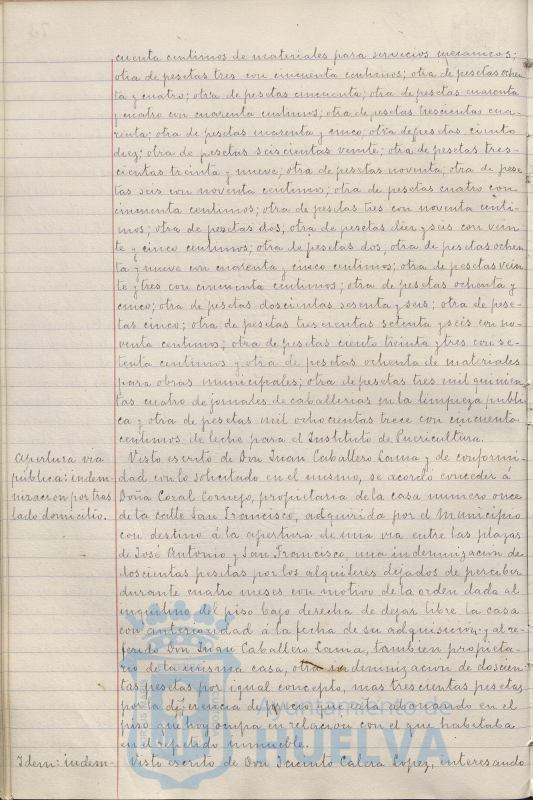 cuenta centimos de materiales para servicios mecanicos;
otra de pesetas tres con cincuenta centimos; otra de pesetas ochen
ta y cuatro; otra de pesetas cincuenta; otra de pesetas cuarenta
y cuatro con cuarenta centimos; otra de pesetas trescientas cua-
renta; otra de pesetas cuarenta y cinco, otra de pesetas ciento
diez; otra de pesetas seiscientas veinte; otra de pesetas tres-
cientas treinta y nueve; otra de pesetas noventa; otra de pese
tas seis con noventa centimos; otra de pesetas cuatro con
cincuenta centimos; otra de pesetas tres con noventa centi-
mos; otra de pesetas dos; otra de pesetas diez y seis con vein
te y cinco centimos; otra de pesetas dos, otra de pesetas ochen
ta y nueve con cuarenta y cinco centimos; otra de pesetas vein
te y tres con cincuenta centimos; otra de pesetas ochenta y
cinco; otra de pesetas doscientas sesenta y seis; otra de pese-
tas cinco; otra de pesetas trescientas setenta y seis con no-
venta centimos; otra de pesetas ciento treinta y tres con se-
tenta centimos y otra de pesetas ochenta de materiales
para obras municipales; otra de pesetas tres mil quinien
tas cuatro de jornales de caballerias en la limpieza publi
ca y otra de pesetas mil ochocientas trece con cincuenta
centimos de leche para el Instituto de Puericultura.
Apertura via
pública: indem
nizacion por tras
lado domicilio.
Visto escrito de Don Juan Caballero Lama y de conformi-
dad con lo solicitado en el mismo, se acordo conceder á
Doña Coral Cornejo, propietaria de la casa numero once
de la calle San Francisco, adquirida por el Municipio
con destino á la apertura de una via entre las plazas
de José Antonio y San Francisco, una indemnizacion de
doscientas pesetas por los alquileres dejados de percibir
durante cuatro meses con motivo de la orden dada al
inquilino del piso bajo derecha de dejar libre la casa
con anterioridad á la fecha de su adquisicion y al re-
ferido Don Juan Caballero Lama, tambien propieta-
rio de la misma casa, otra indemnizacion de doscien
tas pesetas por igual concepto, mas trescientas pesetas
por la diferencia de precio que esta abonando en el
piso que hoy ocupa en relacion con el que habitaba
en el repetido inmueble.
Idem: indem-
Visto escrito de Don Jacinto Calera Lopez, interesando
Ayuntamiento de
HUELVA